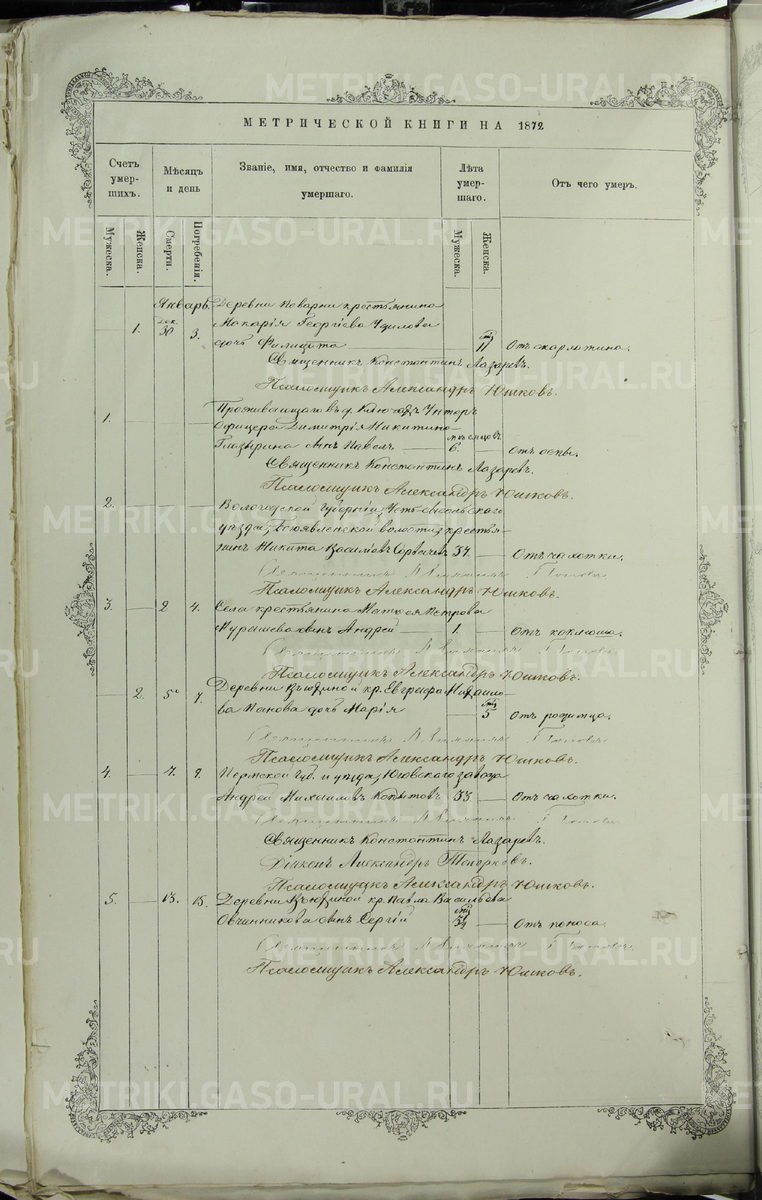 METRIKI.GASO-URAL.RU
МЕТРИЧЕСКОЙ КНИГИ НА 1872
Счетъ умер-шихъ.
Мѣсяцъ и день
Званіе, имя, отчество и фамилія умершаго.
Лѣта умер-шаго.
Отъ чего умеръ.
Мужеска.
Женска.
Смерти.
Погребенія.
Мужеска.
Женска.
Январь. Деревни крестьянина
1. Дек. 30 3. Макарія Георгіева
дочь Филицата 11 Отъ скарлатина.
Священникъ Константинъ Лазаревъ.
Псаломщикъ Александръ Юшковъ.
1. Проживающаго въ д. Ключахъ Унтеръ
Офицера Димитрія Никитина
Глазырина сынъ Павелъ мѣсяцовъ 6. Отъ оспы.
Священникъ Константинъ Лазаревъ.
Псаломщикъ Александръ Юшковъ.
2. Вологодской Губерніи, Усть-сысольскаго
уѣзда, волости, крестья-
нинъ Никита Васильевъ 34. Отъ чахотки.
Священникъ Поповъ
Псаломщикъ Александръ Юшковъ.
3. 2 4. Села крестьянина Матѳея Петрова
Мурашева сынъ Андрей 1. Отъ коклюша.
Священникъ Поповъ
Псаломщикъ Александръ Юшковъ.
2. 5 7. Деревни кр. Евграфа Михаило-
ва Панова дочь Марія 5 Отъ родимца.
Священникъ Поповъ
Псаломщикъ Александръ Юшковъ.
4. 7. 9. Пермской Губ. и уѣзда, Юговскаго завода
Андрей Михаиловъ Копытовъ 33. Отъ чахотки.
Священникъ Поповъ
Священникъ Константинъ Лазаревъ.
Діаконъ Александръ Топорковъ.
Псаломщикъ Александръ Юшковъ.
5. 13. 15. Деревни кр. Павла Васильева
Овчинникова сынъ Сергій Отъ поноса.
Священникъ Поповъ
Псаломщикъ Александръ Юшковъ.